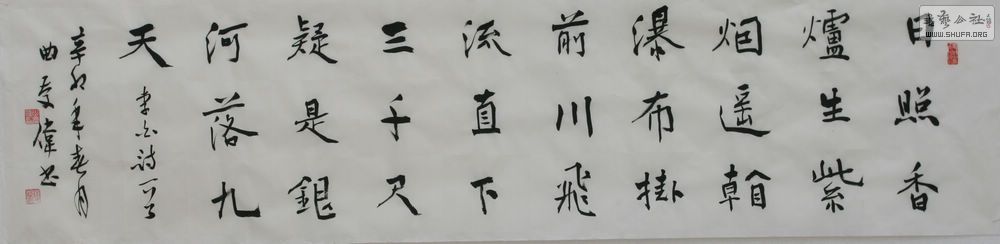 日照香
爐生紫
烟遥朝
瀑布掛
前川飛
流直下
三千尺
疑是銀
河落九
天
李白诗一首
辛卯年春月
曲偉书
書藝公社
WWW.SHUFA.ORG